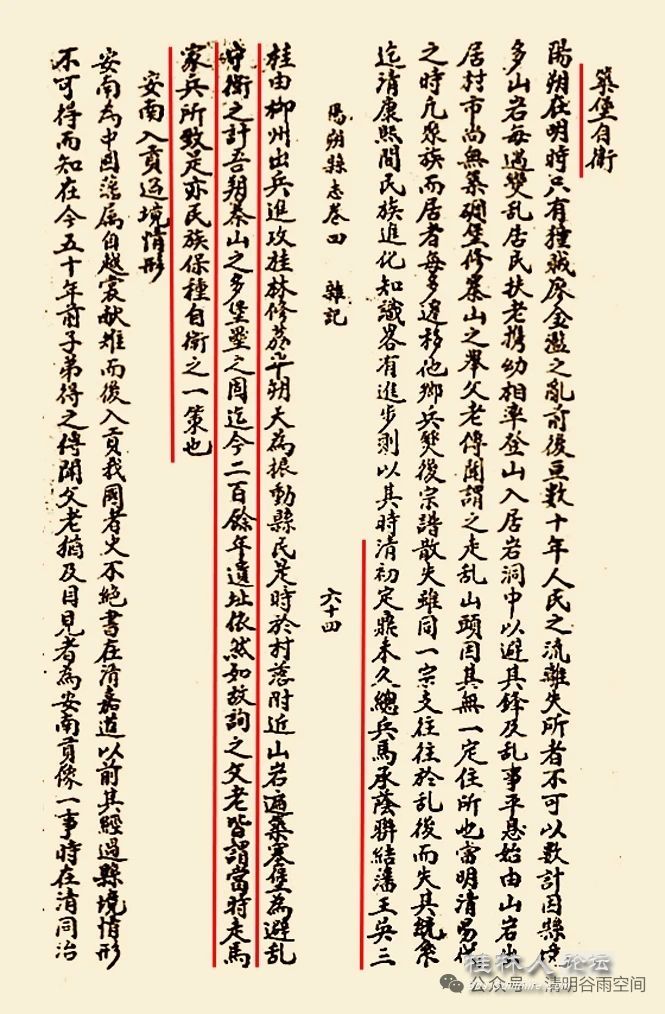 築堡自衛
陽朔在明時只有獞賊廖金濫之亂前後亘數十年人民之流離失所者不可以數計因縣境
多山岩每遇變乱居民扶老携幼相率登山入居岩洞中以避其鋒及乱事平息始由山岩出
居村市尚無築碉堡修寨山之舉父老傳聞謂之走乱山頭因其無一定住所也當明清易代
之時凡聚族而居者每多遷移他鄉兵燹後宗譜散失雖同一宗支往往於乱後而失其統系
迄清康熙間民族進化知識畧有進步則以其時清初定鼎未久總兵馬承蔭聯結藩王吳三
陽朔縣志卷四 雜記 六十四
桂由柳州出兵進攻桂林修荔平朔大為振動縣民是時於村落附近山岩遍築寨堡為避乱
守衛之計吾朔泰山之多堡壘之固迄今二百餘年遺址依然如故詢之父老皆謂當時走馬
家兵所致是亦民族保種自衛之一策也
安南入貢過境情形
安南為中國藩属自越裳献雉而後入貢我國者史不絕書在清嘉道以前其經過縣境情形
不可得而知在今五十年前子弟得之傳聞父老猶及目見者為安南貢像一事時在清同治
桂林人论坛
公众号 · 清明谷雨空间